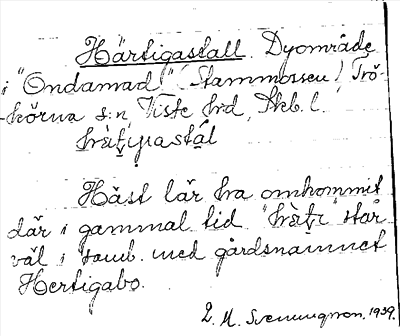 Härtigastall Dyområde
i "Ondamad" (Stammossen) Trö-
-körna s:n, Viste hrd, Skb. l.
Häst lär ha omkommit
där i gammal tid "hät̩i" står
väl i samb. med gårdsnamnet
Hertigabo.
L. M. Svenungsson. 1939.